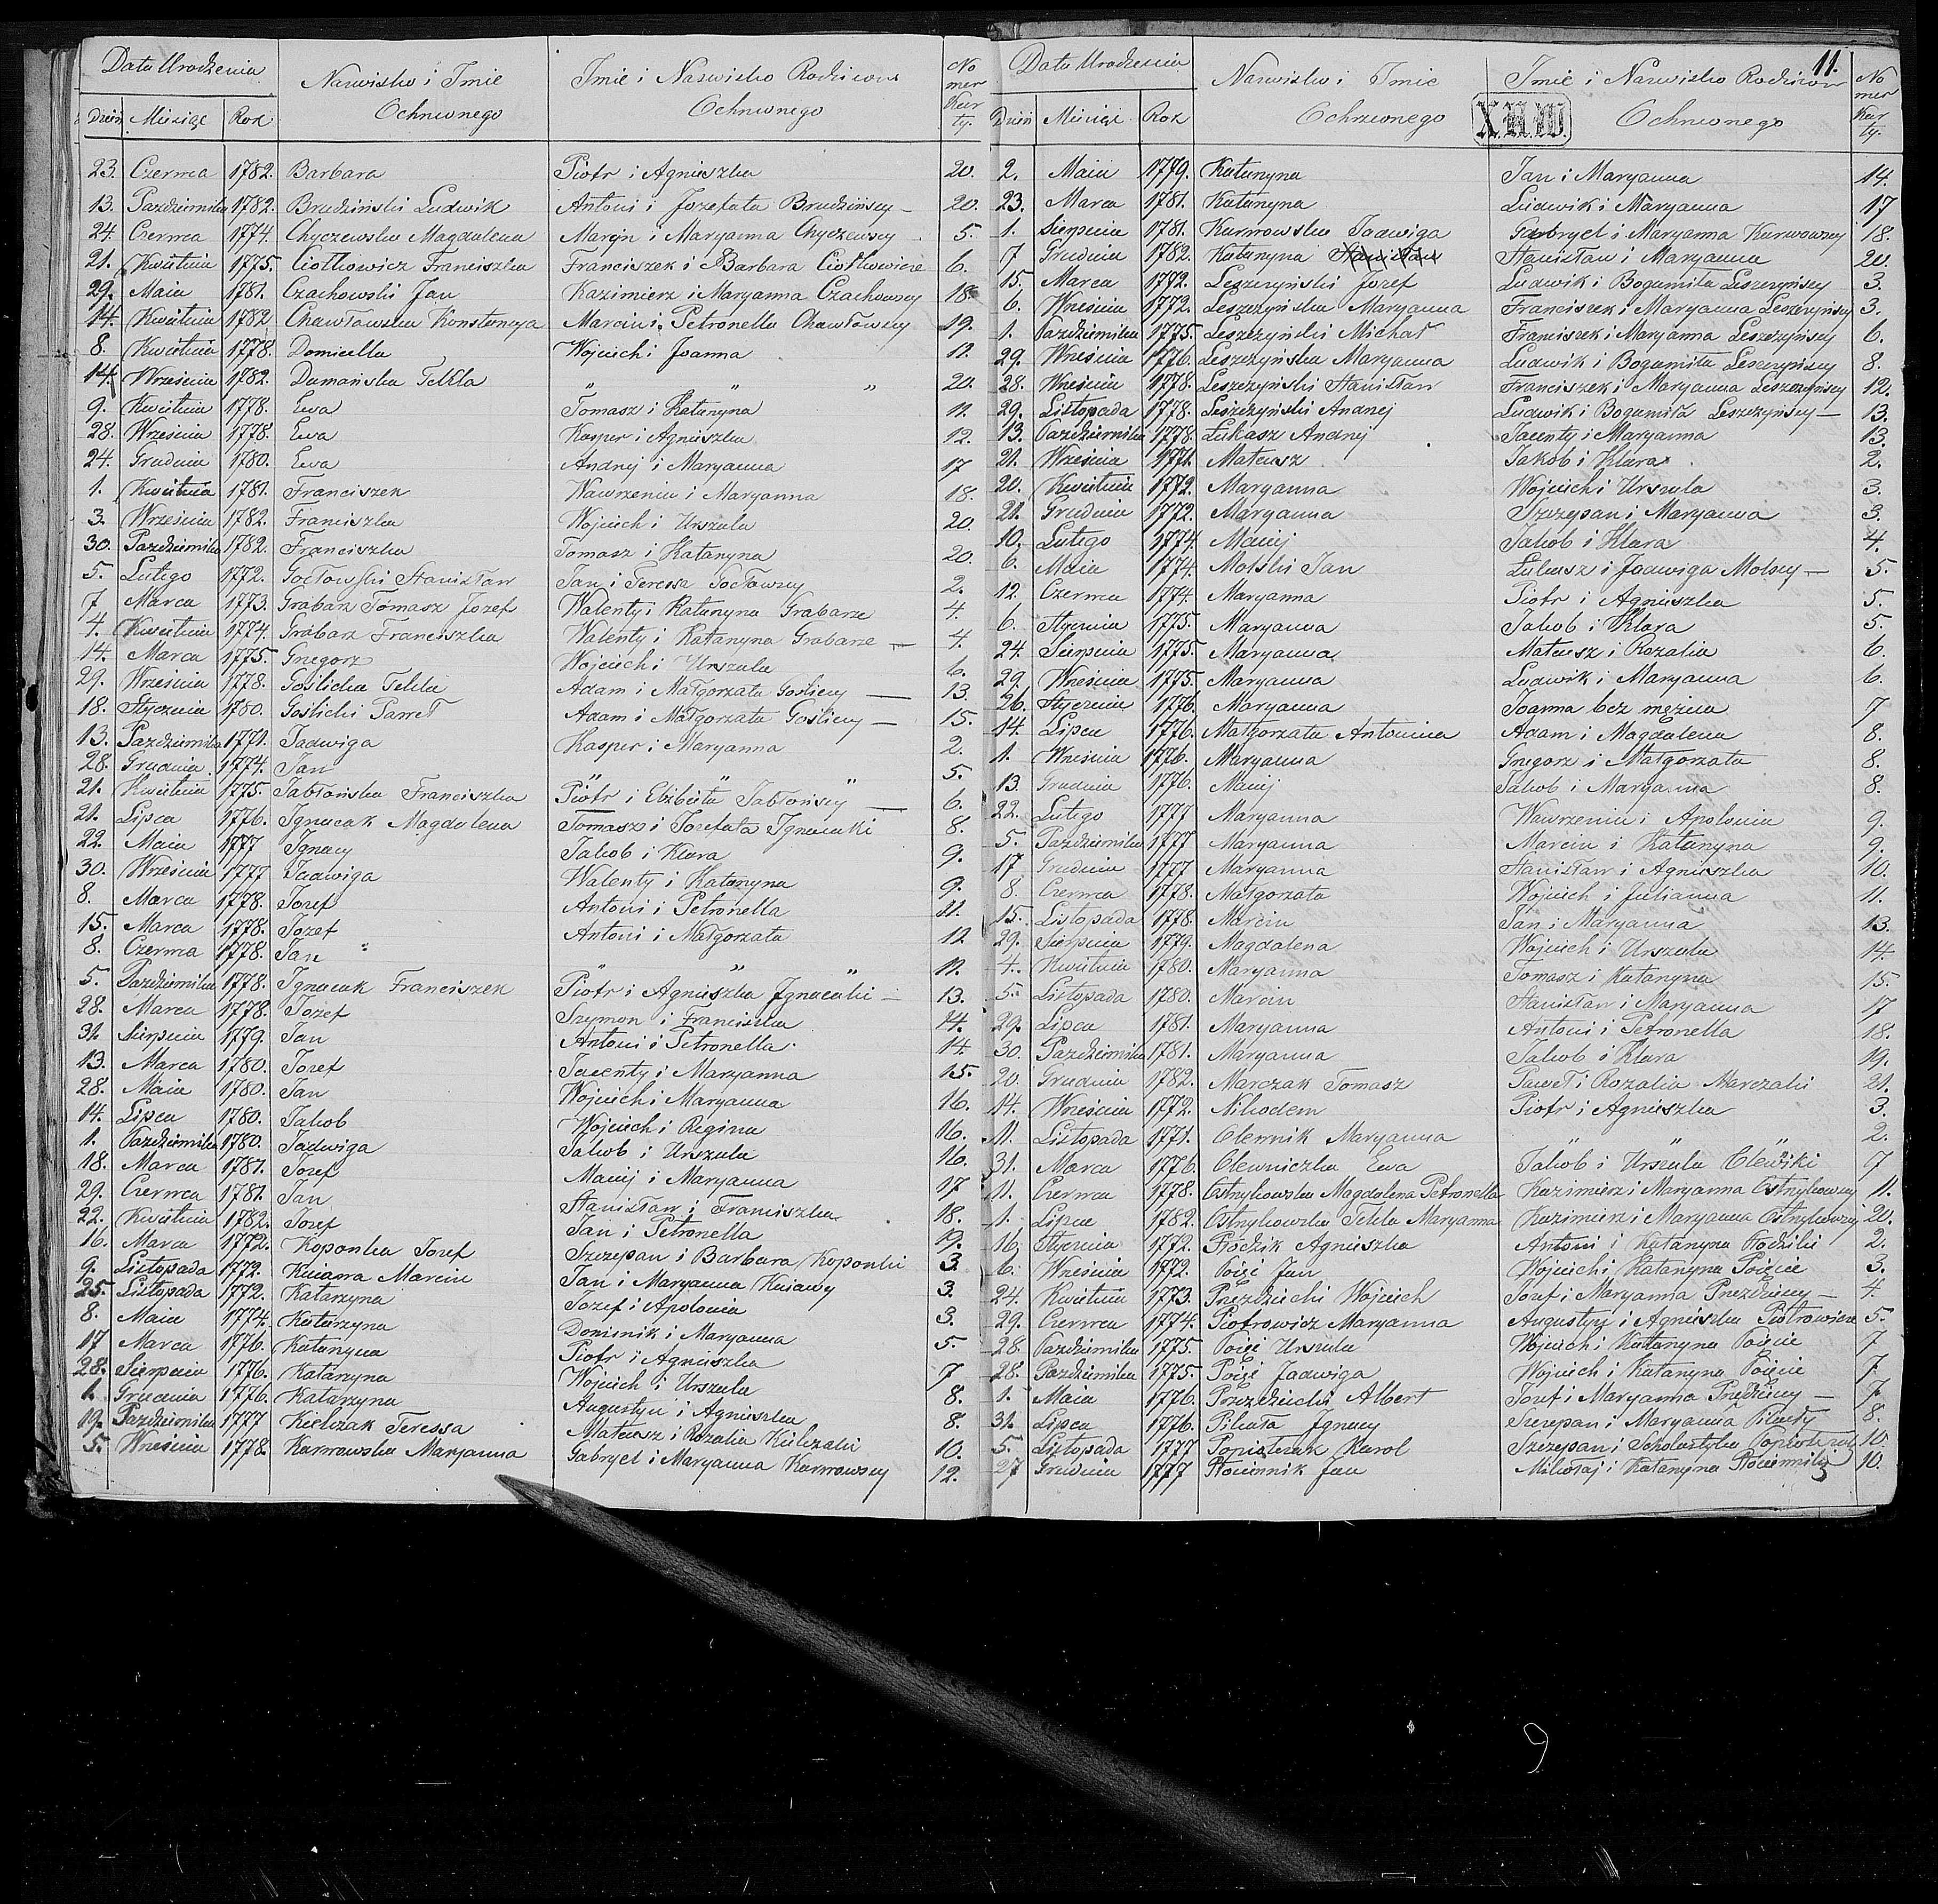 Data Urodzenia Nazwisko i Imie Imie i Nazwisko Rodziców No
Dzień Miesiąc Rok Ochrzconego Ochrzconego mer Kar ty.
23. Czerwca 1782. Barbara Piotr i Agnieszka 20.
13. Pazdziernika 1782. Brudziński Ludwik Antoni i Jozefata Brudzińscy — 20.
24. Czerwca 1774. Chyczewska Magdalena Marcin i Maryanna Chyczewscy 5.
21. Kwietnia 1775. Ciołkowicz Franciszka Franciszek i Barbara Ciołkowicze 6.
29. Maia 1781. Czachowski Jan Kazimierz i Maryanna Czachowscy 18.
14. Kwietnia 1782 Chawłowska Konstancya Marcin i Petronella Chawłowscy 19.
8. Kwietnia 1778. Domicella Wojciech i Joanna 11.
14. Września 1782. Dumańska Tekla " " " 20.
9. Kwietnia 1778. Ewa Tomasz i Katarzyna 11.
28. Września 1778. Ewa Kasper i Agnieszka 12.
24. Grudnia 1780. Ewa Andrzej i Maryanna 17
1. Kwietnia 1781. Franciszek Wawrzeniec i Maryanna 18.
3. Września 1782. Franciszka Wojciech i Urszula 20.
30. Pazdziernika 1782. Franciszka Tomasz i Katarzyna 20.
5. Lutego 1772. Gocłowski Stanisław Jan i Teressa Gocłowscy 2.
7 Marca 1773. Grabarz Tomasz Jozef Walenty i Katarzyna Grabarze 4.
4. Kwietnia 1774. Grabarz Franciszka Walenty i Katarzyna Grabarze — 4.
14. Marca 1775. Grzegorz Wojciech i Urszula 6.
29. Września 1778. Goślicka Tekla Adam i Małgorzata Gosliccy — 13.
18. Stycznia 1780. Goślicki Paweł Adam i Małgorzata Gosliccy — 15.
13. Pazdziernika 1771. Jadwiga Kasper i Maryanna 2.
28. Grudnia 1774. Jan " " " 5.
21. Kwietnia 1775. Jabłońska Franciszka Piotr i Elżbieta Jabłońscy — 6.
21. Lipca 1776. Ignacak Magdalena Tomasz i Jozefata Ignacaki 8.
22. Maia 1777 Ignacy Jakob i Klara 9.
30. Września 1777 Jadwiga Walenty i Katarzyna 9.
8. Marca 1778. Jozef Antoni i Petronella 11.
15. Marca 1778. Jozef Antoni i Małgorzata 12
8. Czerwca 1778. Jan " " " 11.
5. Pazdziernika 1778. Ignacak Franciszek Piotr i Agnieszka Ignacaki — 13.
28. Marca 1778. Jozef Szymon i Franciszka 14.
31. Sierpnia 1779. Jan Antoni i Petronella 14.
13. Marca 1780. Jozef Jacenty i Maryanna 15.
28. Maia 1780. Jan Wojciech i Maryanna 16.
14. Lipca 1780. Jakob Wojciech i Regina 16.
1. Pazdziernika 1780. Jadwiga Jakob i Urszula 16.
18. Marca 1781. Jozef Maciej i Maryanna 17
29. Czerwca 1781. Jan Stanisław i Franciszka 18.
22. Kwietnia 1782. Jozef Jan i Petronella 19.
16. Marca 1772. Koponka Jozef Szczepan i Barbara Koponki 3.
9. Listopada 1772. Kuiawa Marcin Jan i Maryanna Kuiawy 3.
25. Listopada 1772. Katarzyna Jozef i Apolonia 3.
8. Maia 1774. Katarzyna Dominik i Maryanna 5.
17 Marca 1776. Katarzyna Piotr i Agnieszka 7
28. Sierpnia 1776. Katarzyna Wojciech i Urszula 8.
1. Grudnia 1776. Katarzyna Augustyn i Agnieszka 8.
19. Pazdziernika 1777 Kielczak Teressa Mateusz i Rozalia Kielczaki 10.
5. Września 1778. Karwowska Maryanna Gabryel i Maryanna Karwowscy 12.
11.
Data Urodzenia Nazwisko i Imie Imie i Nazwisko Rodziców No
Dzień Miesiąc Rok Ochrzconego X.H.W. Ochrzconego mer Kar ty.
2. Maia 1779. Katarzyna Jan i Maryanna 14.
23. Marca 1781. Katarzyna Ludwik i Maryanna 17
1. Sierpnia 1781. Karwowska Jadwiga Gabryel i Maryanna Karwowscy 18.
7 Grudnia 1782. Katarzyna Stanisław Stanisław i Maryanna 20.
15. Marca 1772. Leszczyński Jozef Ludwik i Bogumiła Leszczyńscy 3.
6. Września 1772. Leszczyńska Maryanna Franciszek i Maryanna Leszczyńscy 3.
1. Pazdziernika 1775. Leszczyński Michał Franciszek i Maryanna Leszczyńscy 6.
29. Września 1776. Leszczyńska Maryanna Ludwik i Bogumiła Leszczyńscy 8.
28. Września 1778. Leszczyński Stanisław Franciszek i Maryanna Leszczyńscy 12.
29. Listopada 1778. Leszczyński Andrzej Ludwik i Bogumiła Leszczyńscy — 13.
13. Pazdziernika 1778. Łukasz Andrzej Jacenty i Maryanna 13.
21. Września 1771. Mateusz Jakob i Klara 2.
20. Kwietnia 1772. Maryanna Wojciech i Urszula 3.
21. Grudnia 1772. Maryanna Szczepan i Maryanna 3.
10. Lutego 1774. Maciej Jakob i Klara 4.
6. Maia 1774. Molski Jan Łukasz i Jadwiga Molscy — 5.
12. Czerwca 1774. Maryanna Piotr i Agnieszka 5.
6. Stycznia 1775. Maryanna Jakob i Klara 5.
24. Sierpnia 1775. Maryanna Mateusz i Rozalia 6.
29. Września 1775. Maryanna Ludwik i Maryanna 6.
26. Stycznia 1776. Maryanna Joanna bez mężna 7
14. Lipca 1776. Małgorzata Antonina Adam i Magdalena 8.
1. Września 1776. Maryanna Grzegorz i Małgorzata 8.
13. Grudnia 1776. Maciej Jakob i Maryanna 8.
22. Lutego 1777 Maryanna Wawrzeniec i Apolonia 9.
5. Pazdziernika 1777 Maryanna Marcin i Katarzyna 9.
17 Grudnia 1777 Maryanna Stanisław i Agnieszka 10.
8. Czerwca 1778. Małgorzata Wojciech i Julianna 11.
15. Listopada 1778. Marcin Jan i Maryanna 13.
29. Sierpnia 1779. Magdalena Wojciech i Urszula 14.
4. Kwietnia 1780. Maryanna Tomasz i Katarzyna 15.
5. Listopada 1780. Marcin Stanisław i Maryanna 17
29. Lipca 1781. Maryanna Antoni i Petronella 18.
30. Pazdziernika 1781. Maryanna Jakob i Klara 19.
20. Grudnia 1782. Marczak Tomasz Paweł i Rozalia Marczaki 21.
14. Września 1772. Nikodem Piotr i Agnieszka 3.
11. Listopada 1771. Olewnik Maryanna " " " 2.
31. Marca 1776. Olewniczka Ewa Jakob i Urszula 7
11. Czerwca 1778. Ostrzykowska Magdalena Petronella Kazimierz i Maryanna Ostrzykowscy 11.
1. Lipca 1782. Ostrzykowska Tekla Maryanna Kazimierz i Maryanna Ostrzykowscy 20.
16. Stycznia 1772. Płodzik Agnieszka Antoni i Katarzyna Płodziki 2.
6. Września 1772. Jan Wojciech i Katarzyna 3.
24. Kwietnia 1773. Przezdziecki Wojciech Jozef i Maryanna Przezdzieccy — 4.
29. Czerwca 1774. Piotrowicz Maryanna Augustyn i Agnieszka Piotrowicze 5.
28. Pazdziernika 1775. Urszula Wojciech i Katarzyna 7
28. Pazdziernika 1775. Jadwiga Wojciech i Katarzyna 7
1. Maia 1776. Przezdziecki Albert Jozef i Maryanna — 7
31. Lipca 1776. Piluta Ignacy Szczepan i Maryanna Piluty 8.
5. Listopada 1777 Popiołczak Karol Szczepan i Scholastyka 10.
27 Grudnia 1777 Płociennik Jan Mikołaj i Katarzyna Płocienniki 10.
9